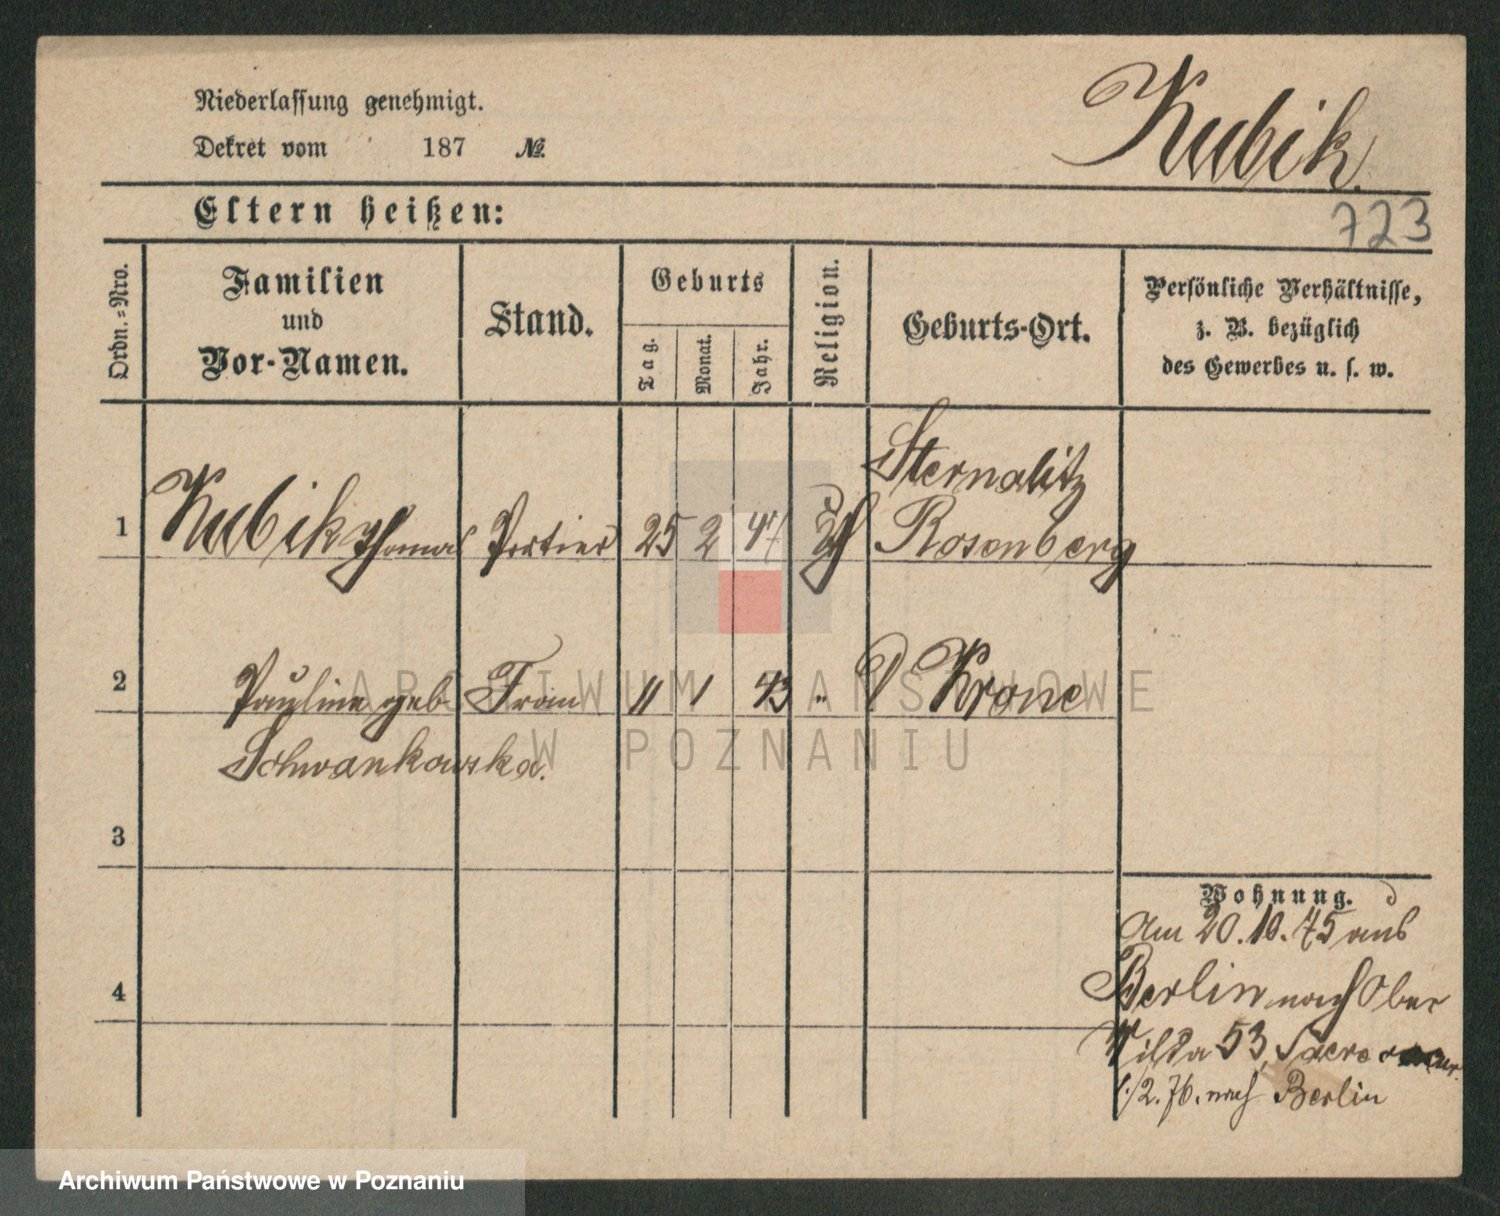 Niederlassung genehmigt.
Dekret vom 187 No.
Kubik
723
Eltern heißen:
Ordn.-Nro.
Familien
und
Vor-Namen.
Stand.
Geburts
Tag.
Monat.
Jahr.
Religion.
Geburts-Ort.
Persönliche Verhältnisse,
z. B. bezüglich
des Gewerbes u. s. w.
Sternalitz
1 Kubik Thomas Portier 25 2 47 Rosenberg
2 Pauline geb Frau 11 1 43 " D Krone
Schwankowska.
3
4
Wohnung.
Am 20.10.75 aus
Berlin nach Ober
Wilda 53,
1./2. 76. nach Berlin
ARCHIWUM PAŃSTWOWE
W POZNANIU
Archiwum Państwowe w Poznaniu